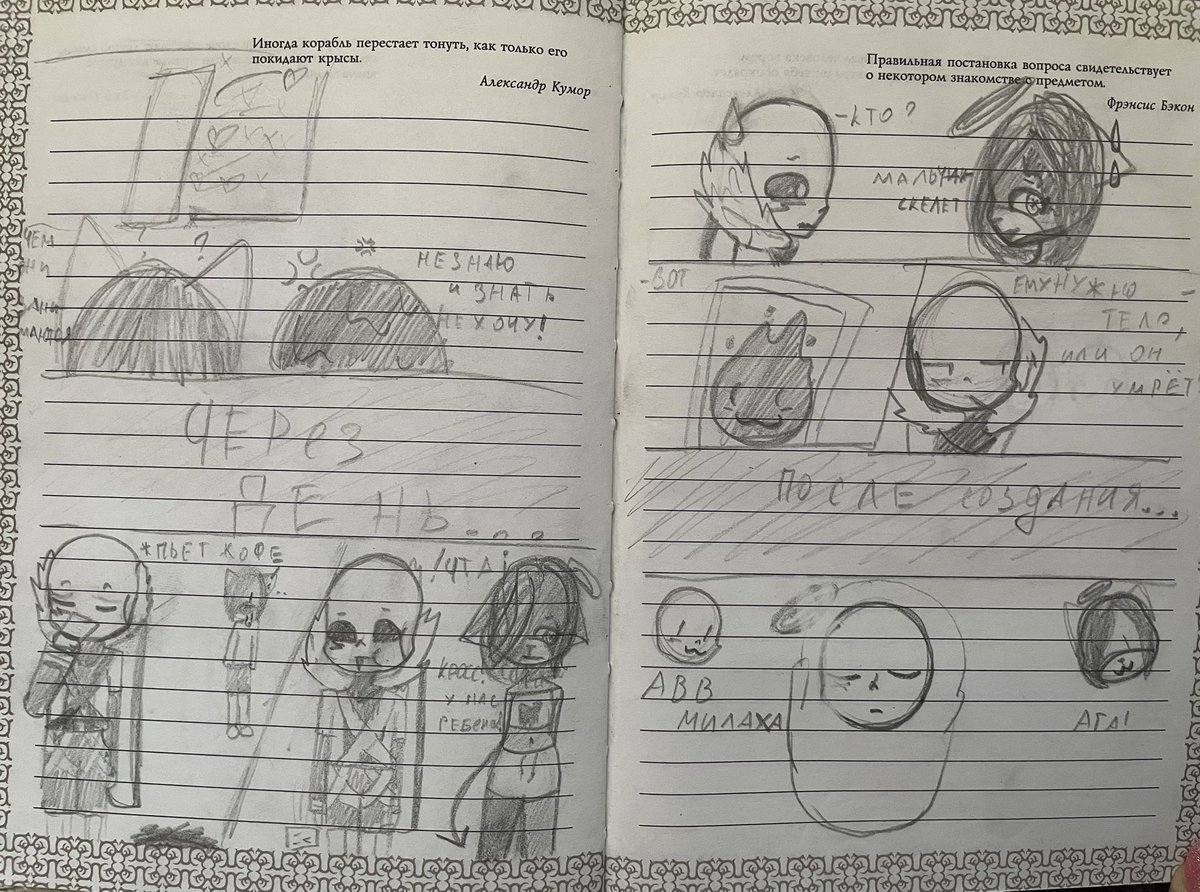 Иногда корабль перестает тонуть, как только его
покидают крысы.
Александр Кумор
ЧЕМ
НЕЗНАЮ
И ЗНАТЬ
НЕ ХОЧУ!
ЧЕРЕЗ
ДЕНЬ...
*ПЬЕТ КОФЕ
У НАС
Правильная постановка вопроса свидетельствует
о некотором знакомстве с предметом.
Фрэнсис Бэкон
-КТО?
МАЛЬЧИК
СКЕЛЕТ
-ВОТ
ЕМУ НУЖНО
ТЕЛО,
ИЛИ ОН
УМРЁТ
ПОСЛЕ СОЗДАНИЯ...
АВВ
МИЛАХА
АГА!